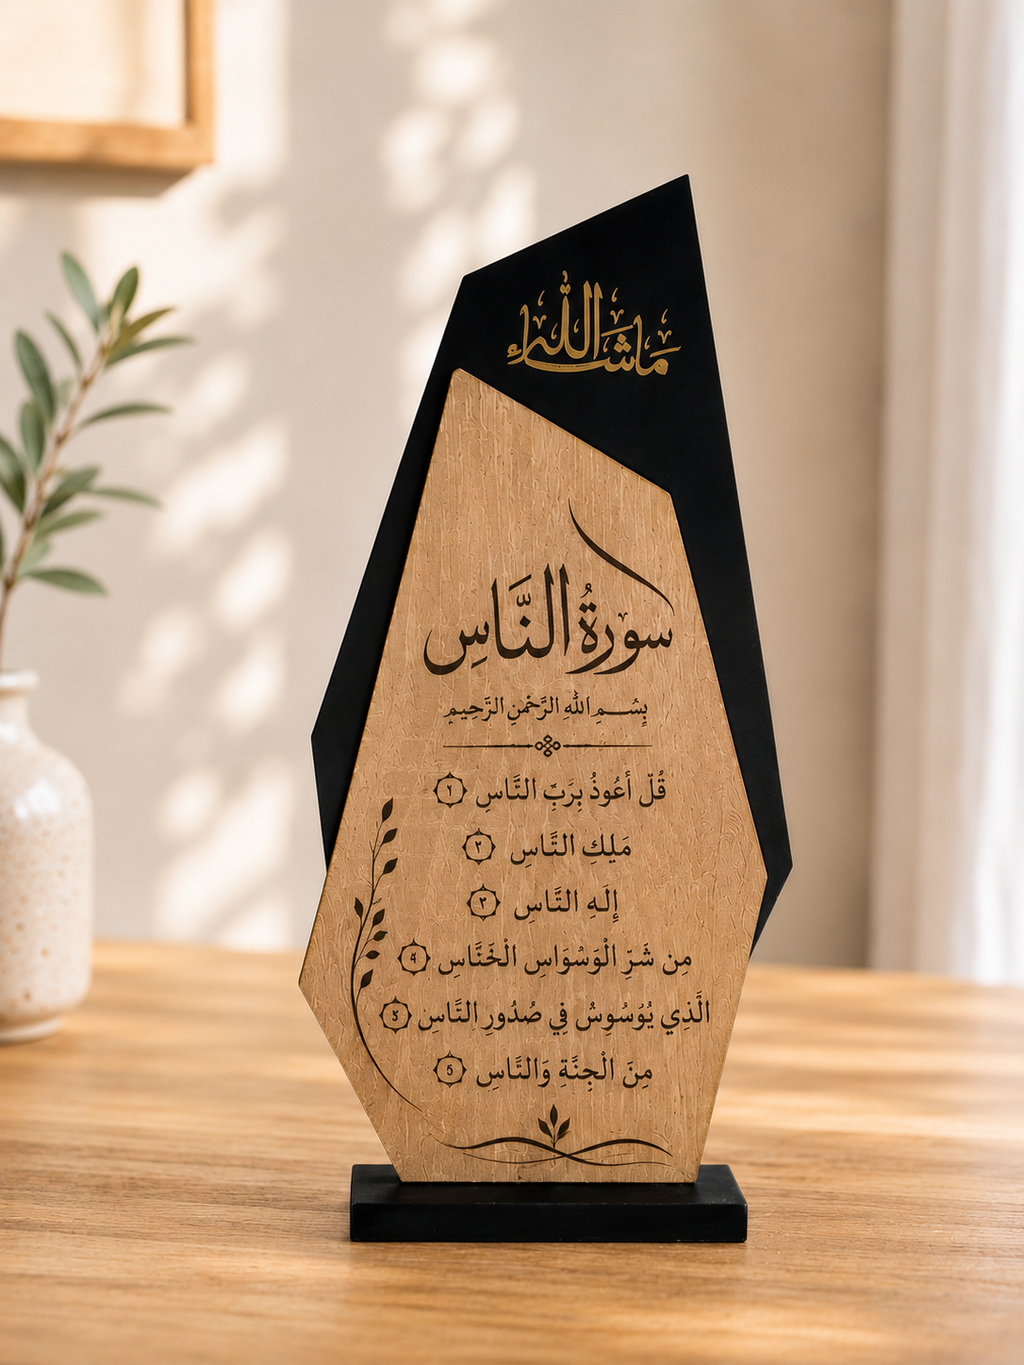 ما شاء الله
سورة النَّاسِ
بِسْمِ اللهِ الرَّحْمٰنِ الرَّحِيمِ
قُلْ أَعُوذُ بِرَبِّ النَّاسِ
مَلِكِ النَّاسِ
إِلَهِ النَّاسِ
مِن شَرِّ الْوَسْوَاسِ الْخَنَّاسِ
الَّذِي يُوَسْوِسُ فِي صُدُورِ النَّاسِ
مِنَ الْجِنَّةِ وَالنَّاسِ